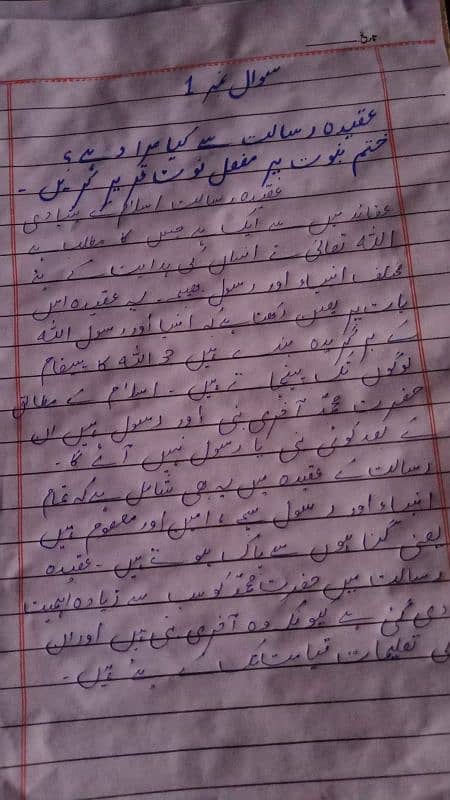 تاریخ
سوال نمبر 1
عقیدہ رسالت سے کیا مراد ہے؟
ختم نبوت پر مفصل نوٹ تحریر کریں۔
عقیدہ رسالت اسلام کے بنیادی
عقائد میں سے ایک ہے جس کا مطلب ہے
اللہ تعالیٰ نے انسان کی ہدایت کے لئے
مختلف انبیاء اور رسول بھیجے۔ یہ عقیدہ اس
بات پر یقین رکھنا ہے کہ انبیا اور رسول اللہ
کے برگزیدہ بندے ہیں جو اللہ کا پیغام
لوگوں تک پہنچاتے ہیں۔ اسلام کے مطابق
حضرت محمدؐ آخری نبی اور رسول ہیں ان
کے بعد کوئی نبی یا رسول نہیں آئے گا۔
رسالت کے عقیدہ میں یہ بھی شامل ہے کہ تمام
انبیاء اور رسول سچے، امین اور معصوم ہیں
یعنی گناہوں سے پاک ہوتے ہیں۔ عقیدہ
رسالت میں حضرت محمدؐ کو سب سے زیادہ اہمیت
دی گئی ہے کیونکہ وہ آخری نبی ہیں اور ان
کی تعلیمات قیامت تک کے لئے ہیں۔